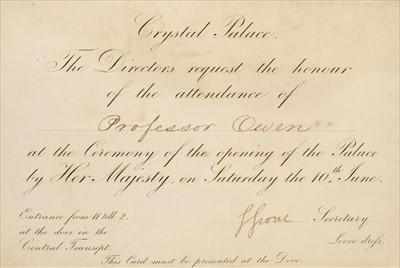 Crystal Palace.
The Directors request the honour
of the attendance of
Professor Owen
at the Ceremony of the opening of the Palace
by Her Majesty, on Saturday the 10th June.
Entrance from 11 till 2.
at the door in the
Central Transept.
GGrove Secretary.
Levee dress.
This Card must be presented at the Door.